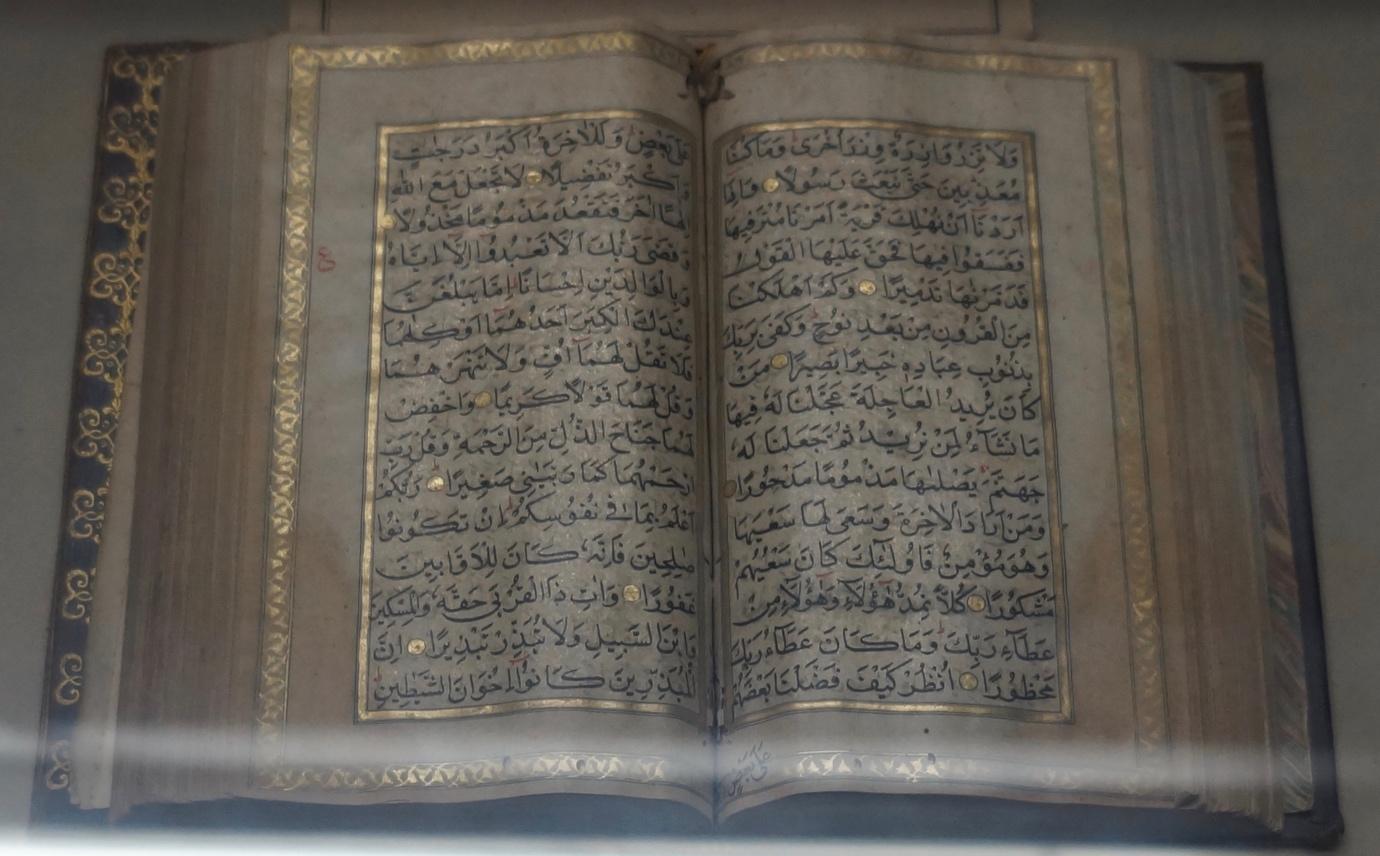 وَلَا تَزِرُ وَازِرَةٌ وِزْرَ أُخْرَى وَمَا كُنَّا
مُعَذِّبِينَ حَتَّى نَبْعَثَ رَسُولًا وَإِذَا
أَرَدْنَا أَنْ نُهْلِكَ قَرْيَةً أَمَرْنَا مُتْرَفِيهَا
فَفَسَقُوا فِيهَا فَحَقَّ عَلَيْهَا الْقَوْلُ
فَدَمَّرْنَهَا تَدْمِيرًا وَكَمْ أَهْلَكْنَا
مِنَ الْقُرُونِ مِنْ بَعْدِ نُوحٍ وَكَفَى بِرَبِّكَ
بِذُنُوبِ عِبَادِهِ خَبِيرًا بَصِيرًا مَنْ
كَانَ يُرِيدُ الْعَاجِلَةَ عَجَّلْنَا لَهُ فِيهَا
مَا نَشَاءُ لِمَنْ نُرِيدُ ثُمَّ جَعَلْنَا لَهُ
جَهَنَّمَ يَصْلَىٰهَا مَذْمُومًا مَدْحُورًا
وَمَنْ أَرَادَ الْآخِرَةَ وَسَعَى لَهَا سَعْيَهَا
وَهُوَ مُؤْمِنٌ فَأُولَٰئِكَ كَانَ سَعْيُهُمْ
مَشْكُورًا كُلًّا نُمِدُّ هَٰؤُلَاءِ وَهَٰؤُلَاءِ مِنْ
عَطَاءِ رَبِّكَ وَمَا كَانَ عَطَاءُ رَبِّكَ
مَحْظُورًا انْظُرْ كَيْفَ فَضَّلْنَا بَعْضَهُمْ
عَلَى بَعْضٍ
عَلَى بَعْضٍ وَلَلْآخِرَةُ أَكْبَرُ دَرَجَٰتٍ
وَأَكْبَرُ تَفْضِيلًا لَا تَجْعَلْ مَعَ اللَّهِ
إِلَٰهًا آخَرَ فَتَقْعُدَ مَذْمُومًا مَخْذُولًا
وَقَضَى رَبُّكَ أَلَّا تَعْبُدُوا إِلَّا إِيَّاهُ
وَبِالْوَالِدَيْنِ إِحْسَانًا إِمَّا يَبْلُغَنَّ
عِنْدَكَ الْكِبَرَ أَحَدُهُمَا أَوْ كِلَٰهُمَا
فَلَا تَقُلْ لَهُمَا أُفٍّ وَلَا تَنْهَرْهُمَا
وَقُلْ لَهُمَا قَوْلًا كَرِيمًا وَاخْفِضْ
لَهُمَا جَنَاحَ الذُّلِّ مِنَ الرَّحْمَةِ وَقُلْ رَبِّ
ارْحَمْهُمَا كَمَا رَبَّيَٰنِي صَغِيرًا رَبُّكُمْ
أَعْلَمُ بِمَا فِي نُفُوسِكُمْ إِنْ تَكُونُوا
صَٰلِحِينَ فَإِنَّهُ كَانَ لِلْأَوَّابِينَ
غَفُورًا وَآتِ ذَا الْقُرْبَى حَقَّهُ وَالْمِسْكِينَ
وَابْنَ السَّبِيلِ وَلَا تُبَذِّرْ تَبْذِيرًا إِنَّ
الْمُبَذِّرِينَ كَانُوا إِخْوَانَ الشَّيَٰطِينِ
ع